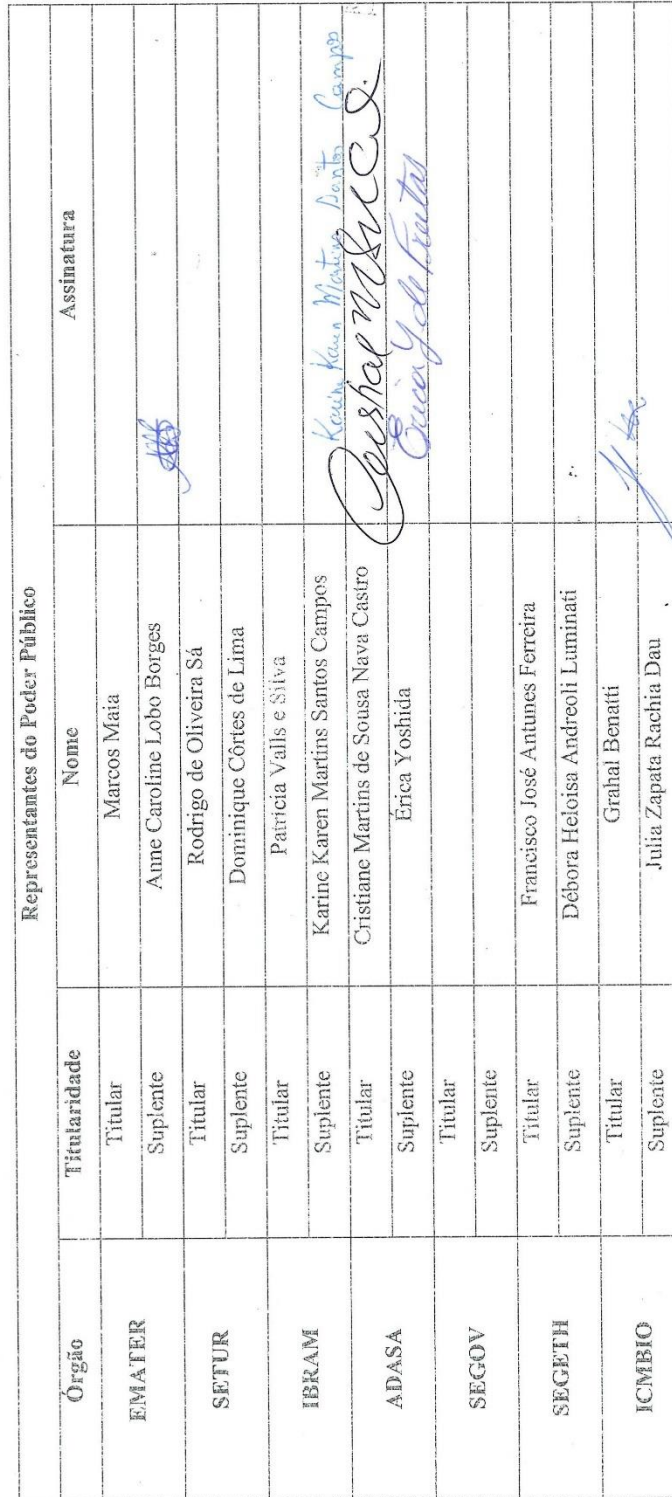 Representantes do Poder Público
Órgão Titularidade Nome Assinatura
EMATER Titular Marcos Maia
Suplente Anne Caroline Lobo Borges
SETUR Titular Rodrigo de Oliveira Sá
Suplente Dominique Côrtes de Lima
IBRAM Titular Patricia Valls e Silva
Suplente Karine Karen Martins Santos Campos Karine Karen Martins Santos Campos
ADASA Titular Cristiane Martins de Sousa Nava Castro
Suplente Érica Yoshida Erica Y de Freitas
SEGOV Titular
Suplente
SEGETH Titular Francisco José Antunes Ferreira
Suplente Débora Heloisa Andreoli Luminati
ICMBIO Titular Grahal Benatti
Suplente Julia Zapata Rachia Dau